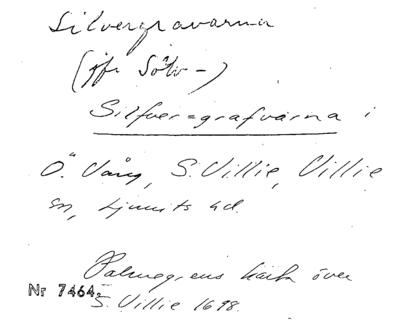 Silvergravarna
(jfr Sölv-)
Silfver=grafvarna i
Ö. Vång, S. Villie, Villie
sn, Ljunits hd.
Palmegrens karta över
Nr 7464. S. Villie 1698.